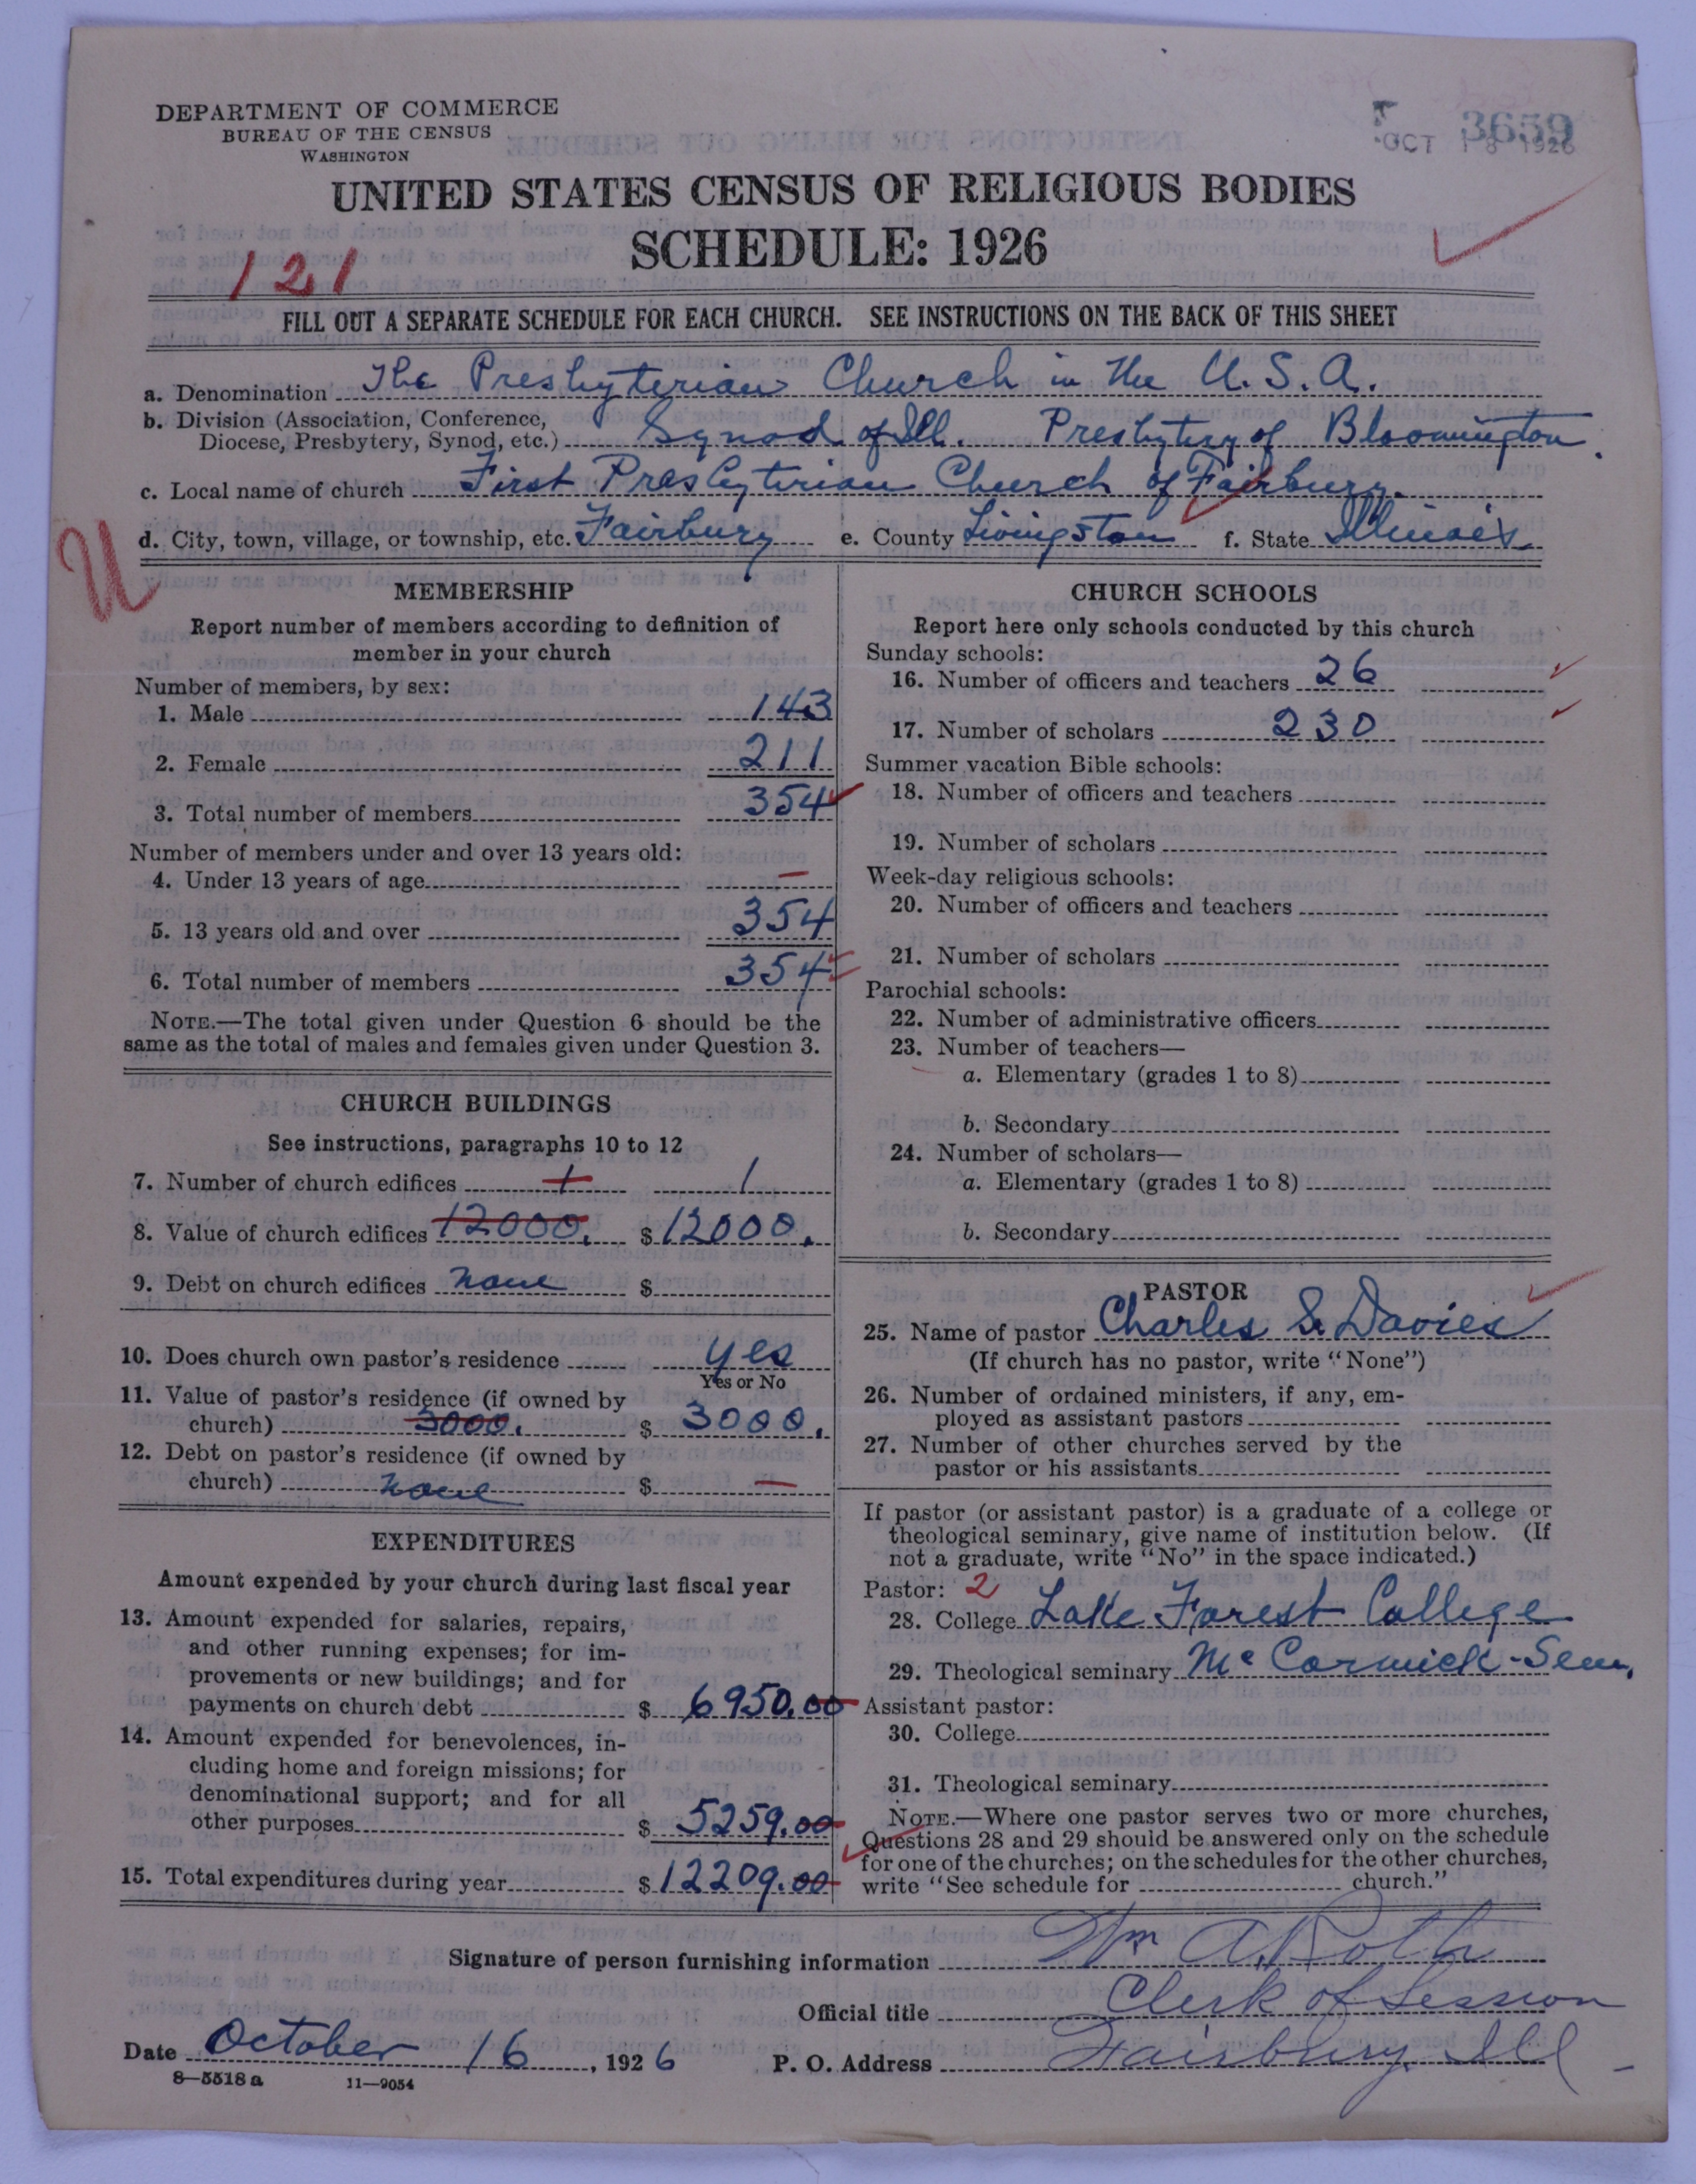 DEPARTMENT OF COMMERCE
BUREAU OF THE CENSUS
WASHINGTON
3659
OCT 18 1926
UNITED STATES CENSUS OF RELIGIOUS BODIES
SCHEDULE: 1926
121
FILL OUT A SEPARATE SCHEDULE FOR EACH CHURCH. SEE INSTRUCTIONS ON THE BACK OF THIS SHEET
a. Denomination The Presbyterian Church in the U.S.A.
b. Division (Association, Conference,
Diocese, Presbytery, Synod, etc.) Synod of Ill. Presbytery of Bloomington.
c. Local name of church First Presbyterian Church of Fairbury.
d. City, town, village, or township, etc. Fairbury e. County Livingston f. State Illinois
U
MEMBERSHIP
Report number of members according to definition of
member in your church
Number of members, by sex:
1. Male 143
2. Female 211
3. Total number of members 354
Number of members under and over 13 years old:
4. Under 13 years of age —
5. 13 years old and over 354
6. Total number of members 354
NOTE.—The total given under Question 6 should be the
same as the total of males and females given under Question 3.
CHURCH BUILDINGS
See instructions, paragraphs 10 to 12
7. Number of church edifices 1 1
8. Value of church edifices 12000. $ 12000.
9. Debt on church edifices None $
10. Does church own pastor's residence Yes
Yes or No
11. Value of pastor's residence (if owned by
church) 3000. $ 3000.
12. Debt on pastor's residence (if owned by
church) None $ —
EXPENDITURES
Amount expended by your church during last fiscal year
13. Amount expended for salaries, repairs,
and other running expenses; for im-
provements or new buildings; and for
payments on church debt $ 6950.00
14. Amount expended for benevolences, in-
cluding home and foreign missions; for
denominational support; and for all
other purposes $ 5259.00
15. Total expenditures during year $ 12209.00
CHURCH SCHOOLS
Report here only schools conducted by this church
Sunday schools:
16. Number of officers and teachers 26
17. Number of scholars 230
Summer vacation Bible schools:
18. Number of officers and teachers
19. Number of scholars
Week-day religious schools:
20. Number of officers and teachers
21. Number of scholars
Parochial schools:
22. Number of administrative officers
23. Number of teachers—
a. Elementary (grades 1 to 8)
b. Secondary
24. Number of scholars—
a. Elementary (grades 1 to 8)
b. Secondary
PASTOR
25. Name of pastor Charles S. Davies
(If church has no pastor, write "None")
26. Number of ordained ministers, if any, em-
ployed as assistant pastors
27. Number of other churches served by the
pastor or his assistants
If pastor (or assistant pastor) is a graduate of a college or
theological seminary, give name of institution below. (If
not a graduate, write "No" in the space indicated.)
Pastor: 2
28. College Lake Forest College
29. Theological seminary McCormick-Sem.
Assistant pastor:
30. College
31. Theological seminary
NOTE.—Where one pastor serves two or more churches,
Questions 28 and 29 should be answered only on the schedule
for one of the churches; on the schedules for the other churches,
write "See schedule for church."
Signature of person furnishing information Wm A. Roth
Official title Clerk of Session
Date October 16, 1926 P. O. Address Fairbury, Ill
8—5518 a 11—9054